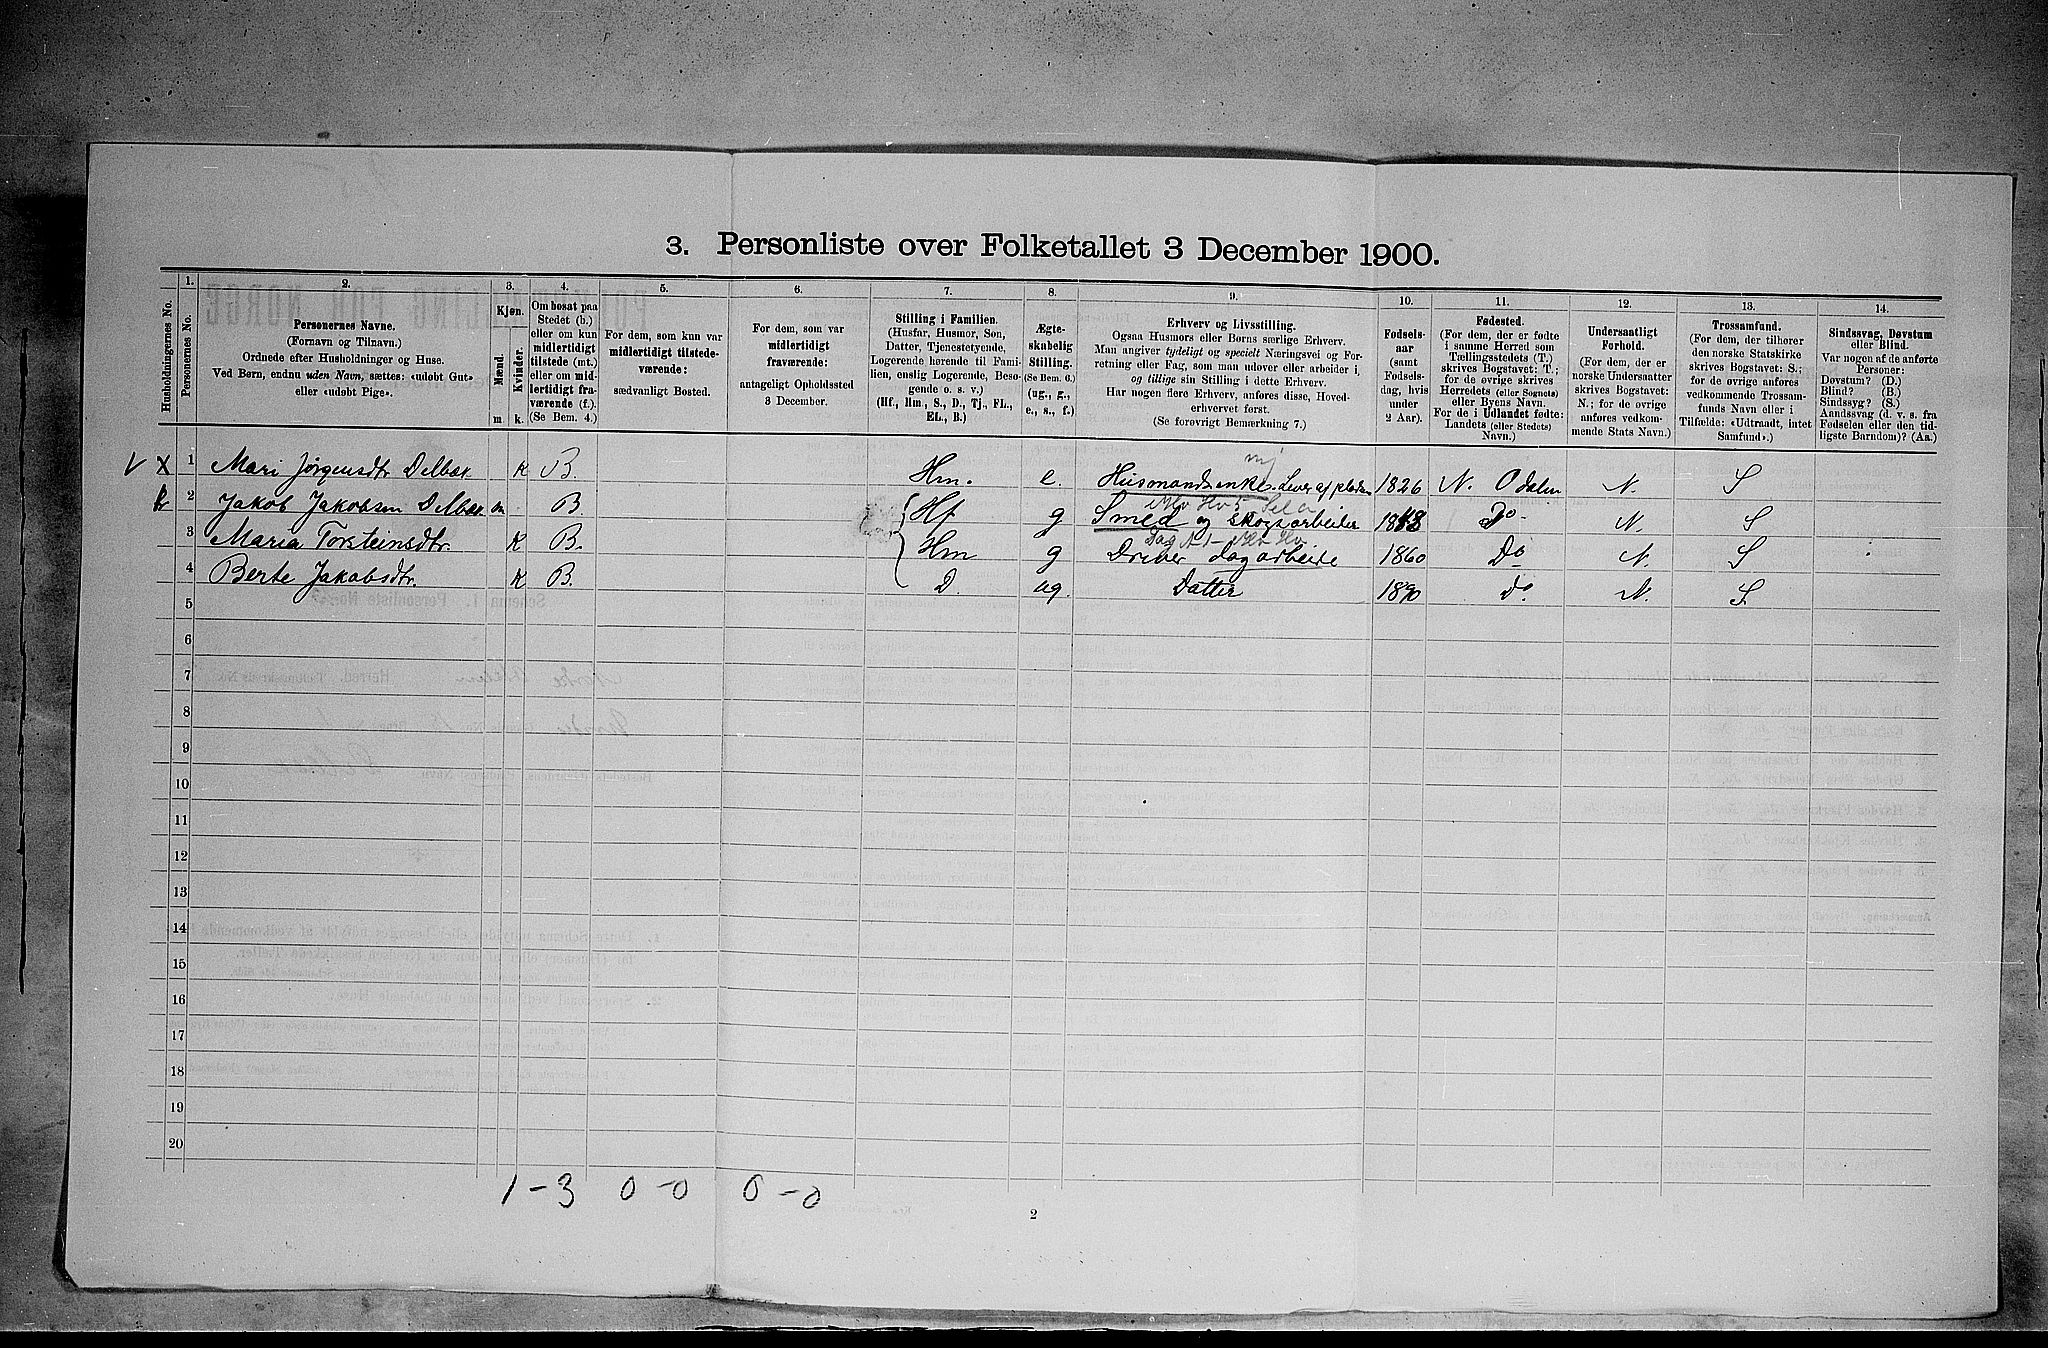 3. Personliste over Folketallet 3 December 1900.
Husholdningernes No.
1.
Personernes No.
2.
Personernes Navne.
(Fornavn og Tilnavn.)
Ordnede efter Husholdninger og Huse.
Ved Børn, endnu uden Navn, sættes: «udøbt Gut»
eller «udøbt Pige».
3.
Kjøn.
Mænd.
Kvinder.
m.
k.
4.
Om bosat paa
Stedet (b.)
eller om kun
midlertidigt
tilstede (mt.)
eller om mid-
lertidigt fra-
værende (f.).
(Se Bem. 4.)
5.
For dem, som kun var
midlertidigt tilstede-
værende:
sædvanligt Bosted.
6.
For dem, som var
midlertidigt
fraværende:
antageligt Opholdssted
3 December.
7.
Stilling i Familien.
(Husfar, Husmor, Søn,
Datter, Tjenestetyende,
Logerende hørende til Fami-
lien, enslig Logerende, Besø-
gende o. s. v.)
(Hf., Hm., S., D., Tj., FL.,
EL., B.)
8.
Ægte-
skabelig
Stilling.
(Se Bem. 6.)
(ug., g.,
e., s., f.)
9.
Erhverv og Livsstilling.
Ogsaa Husmors eller Børns særlige Erhverv.
Man angiver tydeligt og specielt Næringsvei og For-
retning eller Fag, som man udøver eller arbeider i,
og tillige sin Stilling i dette Erhverv.
Har nogen flere Erhverv, anføres disse, Hoved-
erhvervet først.
(Se forøvrigt Bemærkning 7.)
10.
Fødsels-
aar
(samt
Fødsels-
dag, hvis
under
2 Aar).
11.
Fødested.
(For dem, der er fødte
i samme Herred som
Tællingsstedets (T.)
skrives Bogstavet: T.;
for de øvrige skrives
Herredets (eller Sognets)
eller Byens Navn.
For de i Udlandet fødte:
Landets (eller Stedets)
Navn.)
12.
Undersaatligt
Forhold.
(For dem, der er
norske Undersaatter
skrives Bogstavet:
N.; for de øvrige
anføres vedkom-
mende Stats Navn.)
13.
Trossamfund.
(For dem, der tilhører
den norske Statskirke
skrives Bogstavet: S.;
for de øvrige anføres
vedkommende Trossam-
funds Navn eller i
Tilfælde: «Udtraadt, intet
Samfund».)
14.
Sindssvag, Døvstum
eller Blind.
Var nogen af de anførte
Personer:
Døvstum? (D.)
Blind? (B.)
Sindssyg? (S.)
Aandssvag (d. v. s. fra
Fødselen eller den tid-
ligste Barndom)? (Aa.)
1 Mari Jørgensdtr Delbæk K B. Hm. e. Husmandsenke. Lever af pladsen 1826 N. Odalen N. S
2 Jakob Jakobsen Delbæk m B Hf g Smed og skogsarbeider 1858 Do N. S
3 Maria Torsteinsdtr. K B. Hm g Driver dagarbeide 1860 Do N. S
4 Berte Jakobsdtr. K B. D. ug. Datter 1890 do N. S
5
6
7
8
9
10
11
12
13
14
15
16
17
18
19
20
1 - 3 0 - 0 0 - 0
2